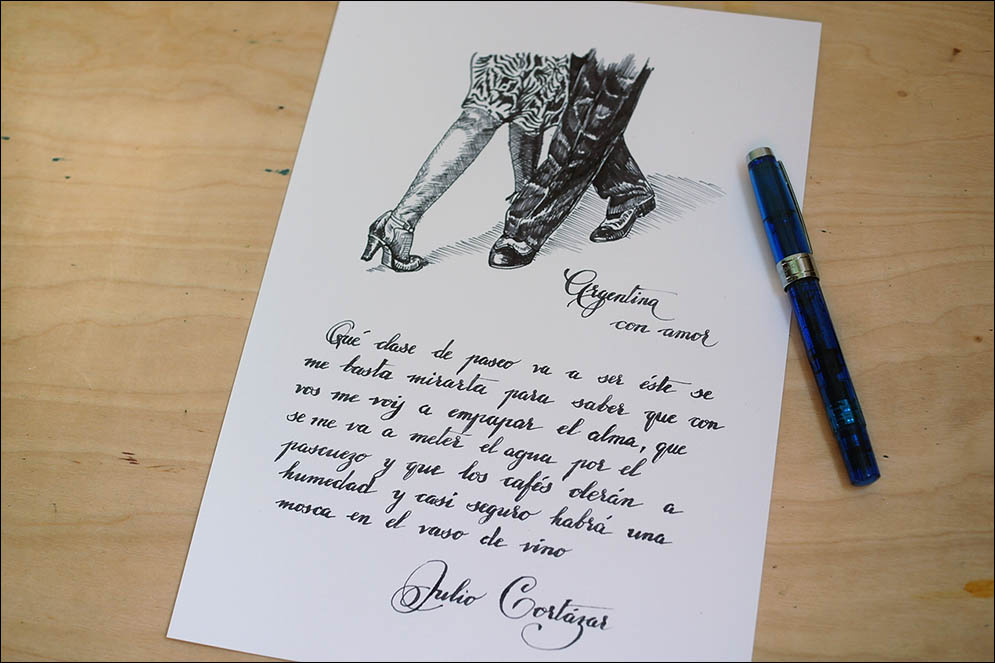 Argentina
con amor
Qué clase de paseo va a ser éste se
me basta mirarta para saber que con
vos me voy a empapar el alma, que
se me va a meter el agua por el
pascuezo y que los cafés olerán a
humedad y casi seguro habrá una
mosca en el vaso de vino
Julio Cortázar